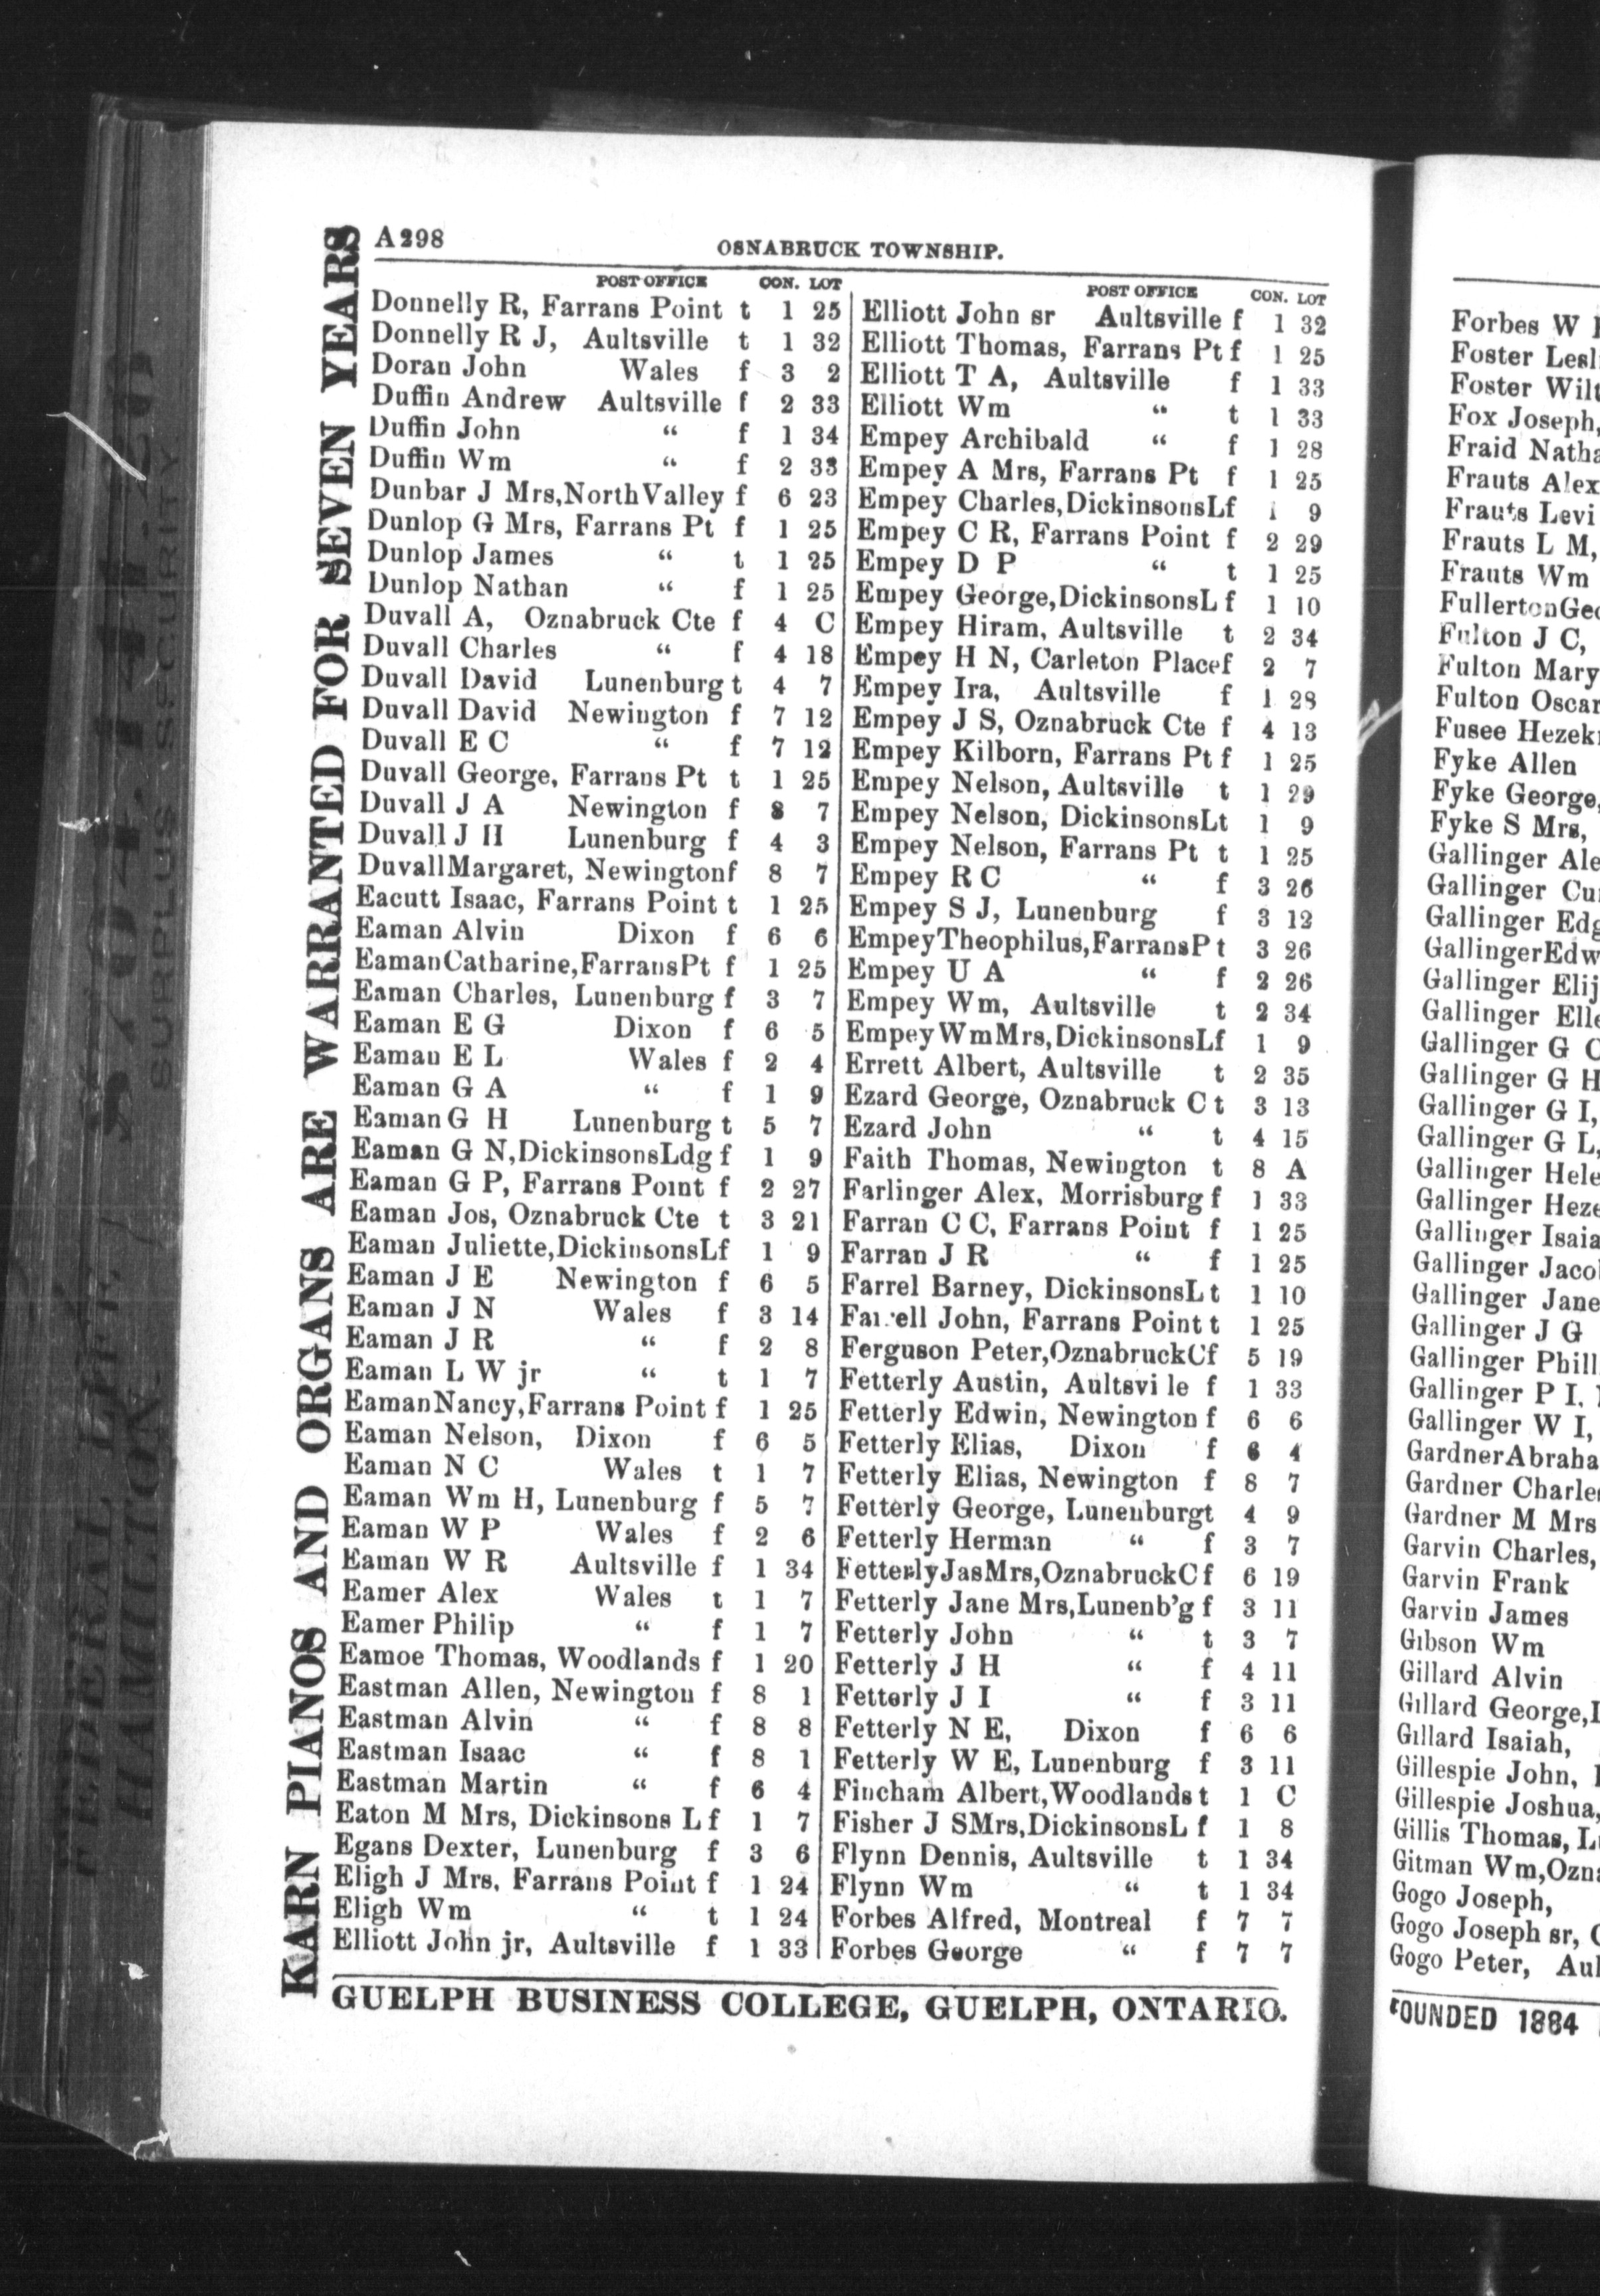 A298
OSNABRUCK TOWNSHIP.
POST OFFICE CON. LOT
Donnelly R, Farrans Point t 1 25
Donnelly R J, Aultsville t 1 32
Doran John Wales f 3 2
Duffin Andrew Aultsville f 2 33
Duffin John “ f 1 34
Duffin Wm “ f 2 33
Dunbar J Mrs,NorthValley f 6 23
Dunlop G Mrs, Farrans Pt f 1 25
Dunlop James “ t 1 25
Dunlop Nathan “ f 1 25
Duvall A, Oznabruck Cte f 4 C
Duvall Charles “ f 4 18
Duvall David Lunenburg t 4 7
Duvall David Newington f 7 12
Duvall E C “ f 7 12
Duvall George, Farrans Pt t 1 25
Duvall J A Newington f 8 7
Duvall J H Lunenburg f 4 3
DuvallMargaret, Newingtonf 8 7
Eacutt Isaac, Farrans Point t 1 25
Eaman Alvin Dixon f 6 6
EamanCatharine,FarransPt f 1 25
Eaman Charles, Lunenburg f 3 7
Eaman E G Dixon f 6 5
Eaman E L Wales f 2 4
Eaman G A “ f 1 9
Eaman G H Lunenburg t 5 7
Eaman G N,DickinsonsLdg f 1 9
Eaman G P, Farrans Point f 2 27
Eaman Jos, Oznabruck Cte t 3 21
Eaman Juliette,DickinsonsLf 1 9
Eaman J E Newington f 6 5
Eaman J N Wales f 3 14
Eaman J R “ f 2 8
Eaman L W jr “ t 1 7
EamanNancy,Farrans Point f 1 25
Eaman Nelson, Dixon f 6 5
Eaman N C Wales t 1 7
Eaman Wm H, Lunenburg f 5 7
Eaman W P Wales f 2 6
Eaman W R Aultsville f 1 34
Eamer Alex Wales t 1 7
Eamer Philip “ f 1 7
Eamoe Thomas, Woodlands f 1 20
Eastman Allen, Newington f 8 1
Eastman Alvin “ f 8 8
Eastman Isaac “ f 8 1
Eastman Martin “ f 6 4
Eaton M Mrs, Dickinsons L f 1 7
Egans Dexter, Lunenburg f 3 6
Eligh J Mrs, Farrans Point f 1 24
Eligh Wm “ t 1 24
Elliott John jr, Aultsville f 1 33
POST OFFICE CON. LOT
Elliott John sr Aultsville f 1 32
Elliott Thomas, Farrans Pt f 1 25
Elliott T A, Aultsville f 1 33
Elliott Wm “ t 1 33
Empey Archibald “ f 1 28
Empey A Mrs, Farrans Pt f 1 25
Empey Charles,DickinsonsLf 1 9
Empey C R, Farrans Point f 2 29
Empey D P “ t 1 25
Empey George,DickinsonsL f 1 10
Empey Hiram, Aultsville t 2 34
Empey H N, Carleton Placef 2 7
Empey Ira, Aultsville f 1 28
Empey J S, Oznabruck Cte f 4 13
Empey Kilborn, Farrans Pt f 1 25
Empey Nelson, Aultsville t 1 29
Empey Nelson, DickinsonsLt 1 9
Empey Nelson, Farrans Pt t 1 25
Empey R C “ f 3 26
Empey S J, Lunenburg f 3 12
EmpeyTheophilus,FarransP t 3 26
Empey U A “ f 2 26
Empey Wm, Aultsville t 2 34
EmpeyWmMrs,DickinsonsLf 1 9
Errett Albert, Aultsville t 2 35
Ezard George, Oznabruck C t 3 13
Ezard John “ t 4 15
Faith Thomas, Newington t 8 A
Farlinger Alex, Morrisburg f 1 33
Farran C C, Farrans Point f 1 25
Farran J R “ f 1 25
Farrel Barney, DickinsonsL t 1 10
John, Farrans Point t 1 25
Ferguson Peter,OznabruckCf 5 19
Fetterly Austin, Aultsvi le f 1 33
Fetterly Edwin, Newington f 6 6
Fetterly Elias, Dixon f 6 4
Fetterly Elias, Newington f 8 7
Fetterly George, Lunenburgt 4 9
Fetterly Herman “ f 3 7
FetterlyJasMrs,OznabruckC f 6 19
Fetterly Jane Mrs,Lunenb’g f 3 11
Fetterly John “ t 3 7
Fetterly J H “ f 4 11
Fetterly J I “ f 3 11
Fetterly N E, Dixon f 6 6
Fetterly W E, Lunenburg f 3 11
Fincham Albert,Woodlands t 1 C
Fisher J SMrs,DickinsonsL f 1 8
Flynn Dennis, Aultsville t 1 34
Flynn Wm “ t 1 34
Forbes Alfred, Montreal f 7 7
Forbes George “ f 7 7
GUELPH BUSINESS COLLEGE, GUELPH, ONTARIO.
KARN PIANOS AND ORGANS ARE WARRANTED FOR SEVEN YEARS
SURPLUS SECURITY
FEDERAL LIFE
HAMILTON.
Forbes W
Foster
Foster
Fox Joseph,
Fraid
Frauts Alex
Frauts Levi
Frauts L M,
Frauts Wm
Fullerton
Fulton J C,
Fulton Mary
Fulton Oscar
Fusee
Fyke Allen
Fyke George,
Fyke S Mrs,
Gallinger
Gallinger
Gallinger
Gallinger
Gallinger
Gallinger
Gallinger G
Gallinger G H
Gallinger G I,
Gallinger G L,
Gallinger
Gallinger
Gallinger
Gallinger
Gallinger
Gallinger J G
Gallinger
Gallinger P I,
Gallinger W I,
Gardner
Gardner
Gardner M Mrs
Garvin Charles,
Garvin Frank
Garvin James
Gibson Wm
Gillard Alvin
Gillard George,
Gillard Isaiah,
Gillespie John,
Gillespie Joshua,
Gillis Thomas,
Gitman Wm,
Gogo Joseph,
Gogo Joseph sr,
Gogo Peter,
FOUNDED 1884